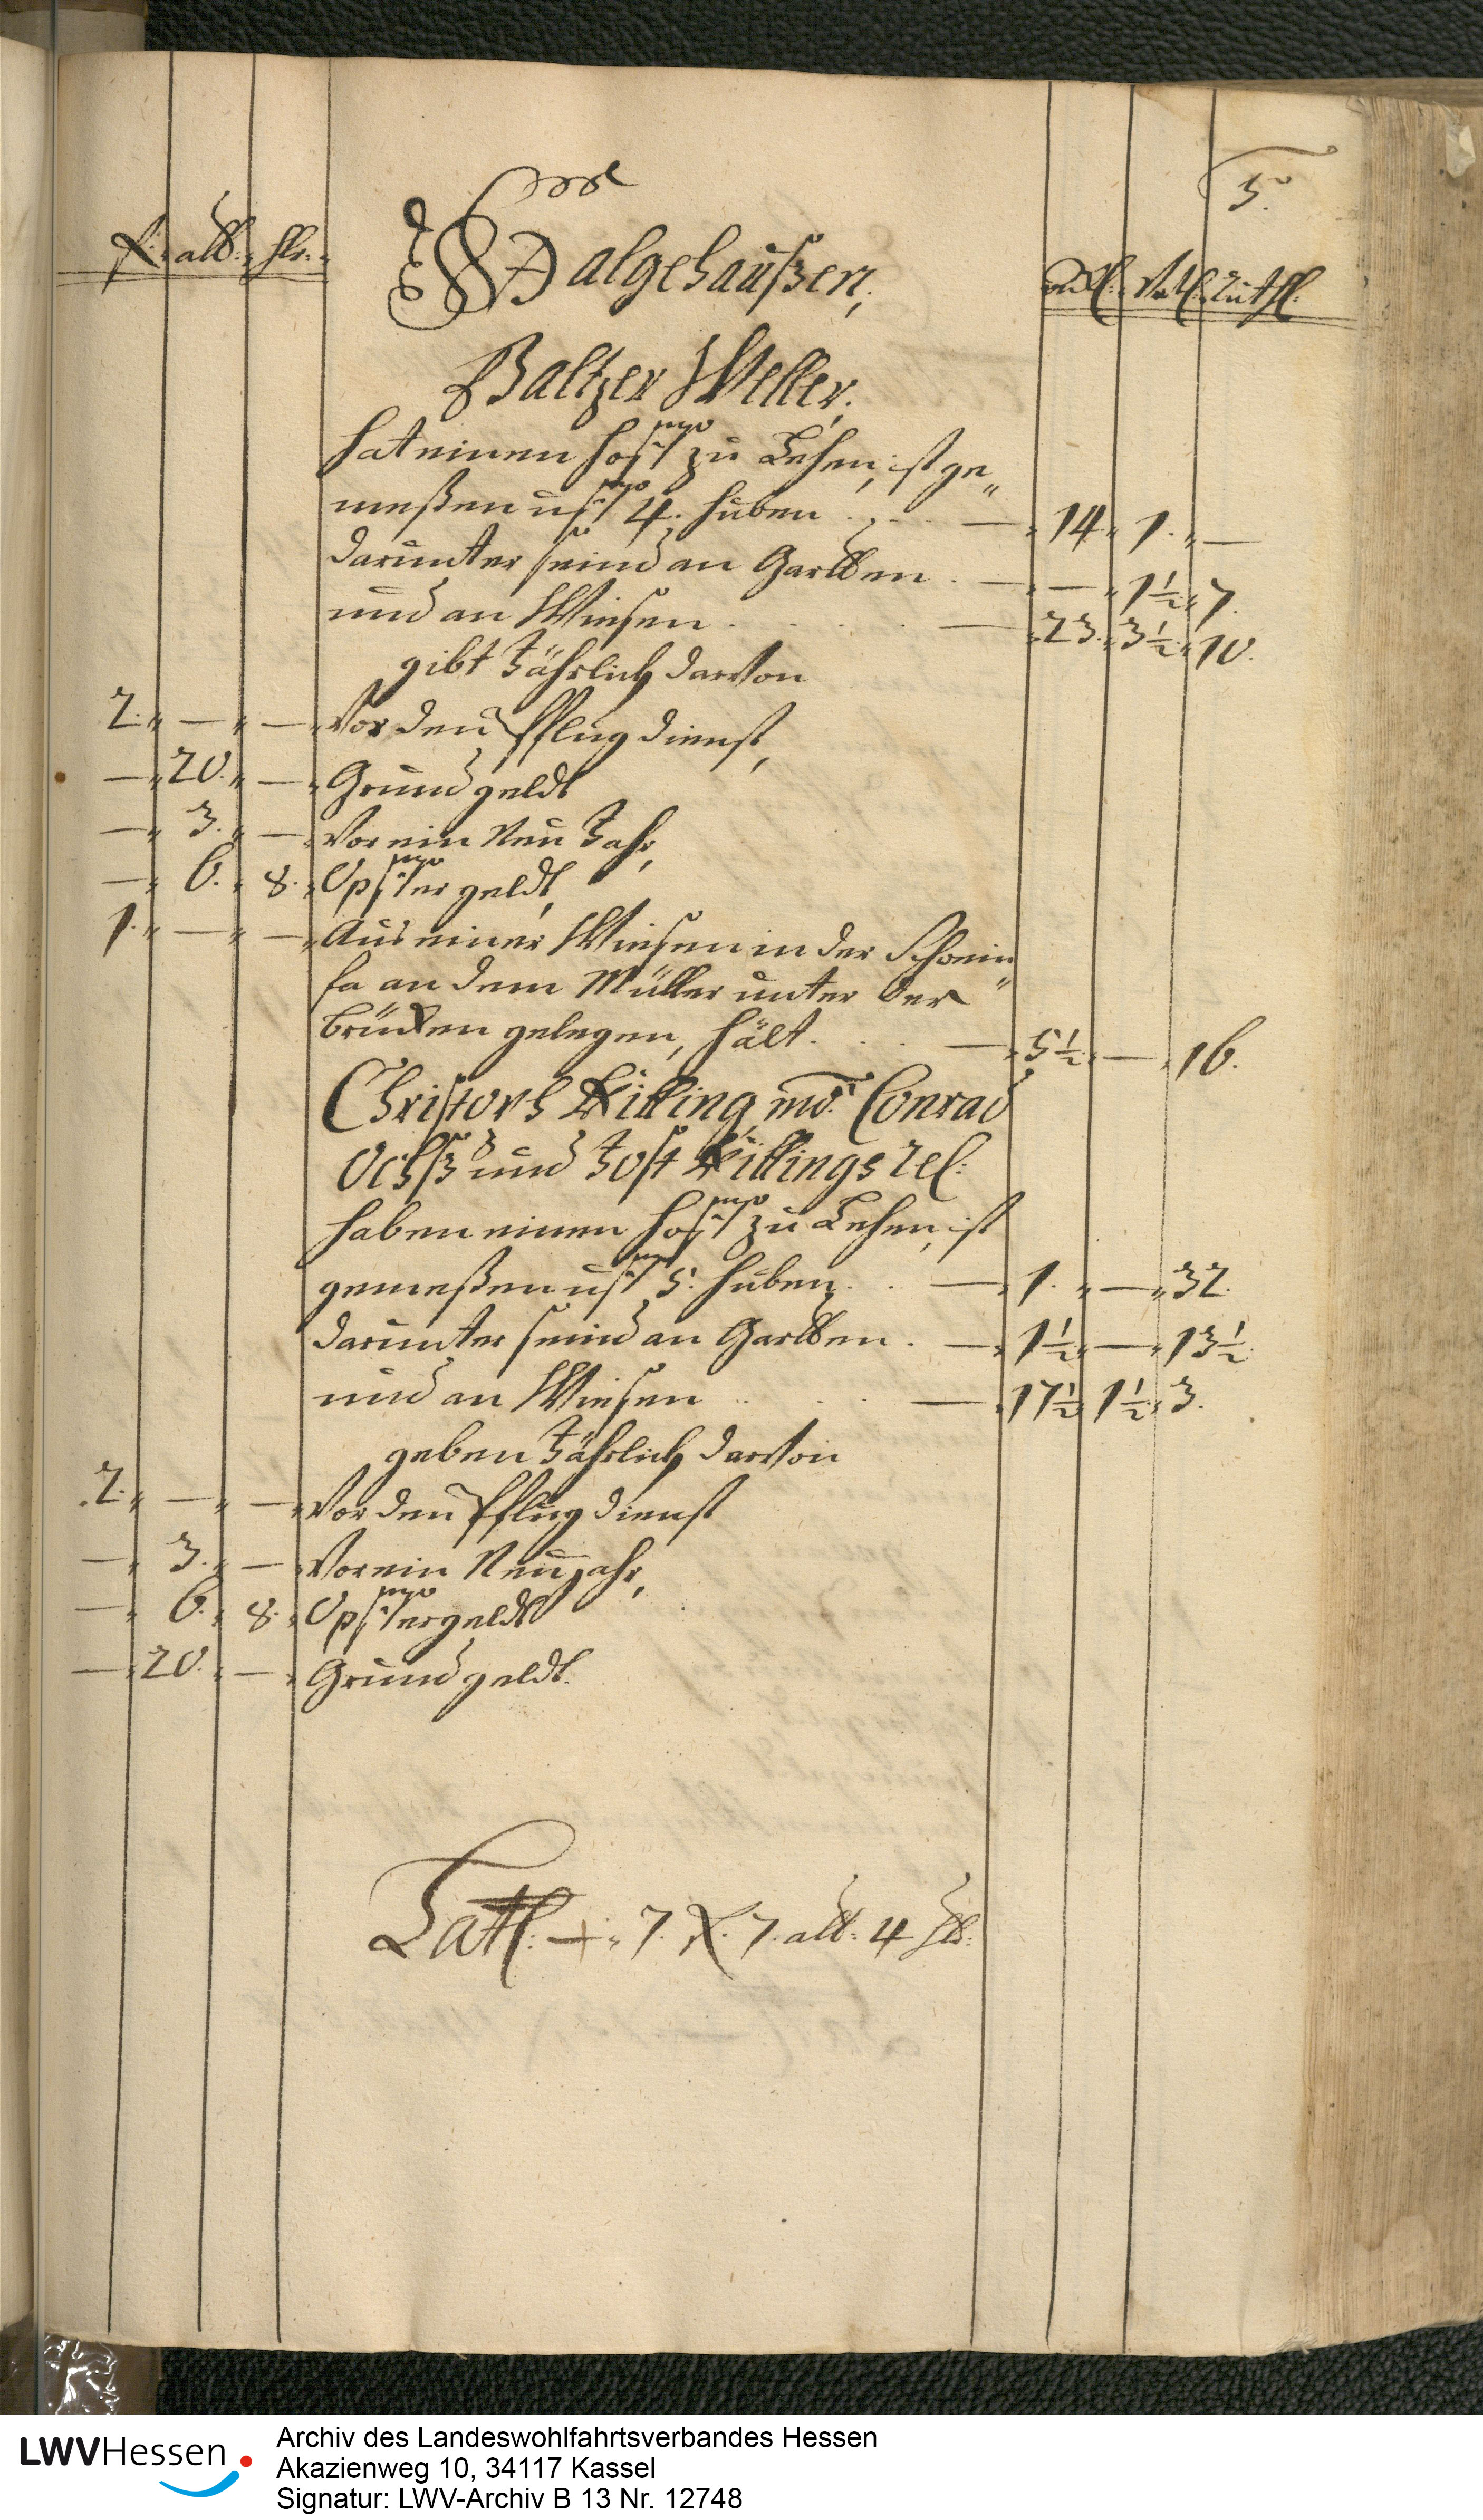 5.
fl. alb. hlr. Dalgehaußen, Viertl. Ruthl.
Baltzer Weller,
hat einen Hoff zu Lehen, ist ge„
meßen uff 4. huben . . . — 14. 1. —
darunter seind an Garthen . — — 1½ 7.
und an Wiesen . . . . — 23. 3½ 10.
gibt Jährlich darvon
2. — — Vor den Pflug dienst,
— 20. — Grund geldt
— 3. — Vor ein Neu Jahr,
— 6. 8. Opffer geldt,
1. — — Aus einer Wiesen in der Schwein„
fa an dem Müller unter der
brücken gelegen, hält . . . — 5½ — 16.
Christoph Killing, und Conrad
Ochß und Jost Killings rel:
haben einen Hoff zu Lehen, ist
gemeßen uff 5. huben . . — 1. — 32.
darunter seind an Garthen . — 1½ — 13½
und an Wiesen . . . — 17½ 1½ 3.
geben Jährlich darvon
2. — — Vor den Pflug dienst
— 3. — Vor ein Neu jahr,
— 6. 8. Opffergeldt
— 20. — Grund geldt.
Lat: — 7. fl. 7. alb: 4 hlr.
LWVHessen
Archiv des Landeswohlfahrtsverbandes Hessen
Akazienweg 10, 34117 Kassel
Signatur: LWV-Archiv B 13 Nr. 12748